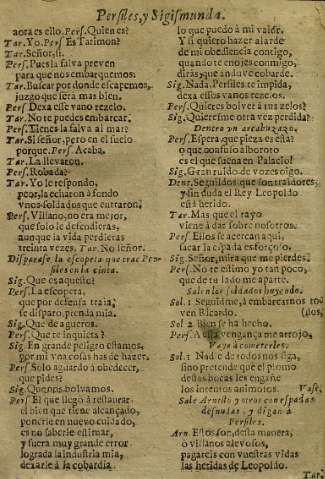 Persiles, y Sigismunda.
aora es ello. Pers. Quien es?
Tar. Yo. Pers. Es Tarimon?
Tar. Señor, si.
Pers. Pues la salva preven
para que nos embarquemos.
Tar. Buscar por donde escapemos,
juzgo que serà mas bien.
Pers. Dexa esse vano rezelo.
Tar. No te puedes embarcar.
Pers. Tienes la salva al mar?
Tar. Si señor, pero en el suelo
porque. Pers. Acaba.
Tar. La llevaron.
Pers. Robada?
Tar. Yo le respondo,
peor, la echaron à fondo
unos soldados que entraron.
Pers. Villano, no era mejor,
que solo le defendieras,
aunque la vida perdieras
treinta vezes. Tar. No señor.
Disparase la escopeta que trae Persiles
en la cinta.
Sig. Que es aquello?
Pers. La escopeta,
que por defensa traia,
se disparò, prenda mia.
Sig. Que de agueros.
Pers. Que te inquieta?
Sig. En grande peligro estamos,
por mi una cosa has de hazer.
Pers. Solo aguardo à obedecer,
que pides?
Sig. Que nos bolvamos.
Pers. El que llegò à restaurar
el bien que tiene alcançado,
ponerle en nuevo cuidado,
es no saberle estimar,
y fuera muy grande error
lograda la industria mia,
dexarle à la cobardia
lo que puedo à mi valor.
Y si quiero hazer alarde
de mi obediencia contigo,
quando te enojes conmigo,
diràs, que anduve cobarde.
Sig. Nada, Persiles te impida,
dexa essos vanos rezelos.
Pers. Quieres bolver à tus zelos?
Sig. Quieresme otra vez perdida?
Dentro un arcabuzazo.
Pers. Espera, que pieza es esta?
o que confuso alboroto
es el que suena en Palacio?
Sig. Gran ruido de vozes oigo.
Dent. Seguidlos que son traidores,
y sin duda el Rey Leopoldo
està herido.
Tar. Mas que el rayo
viene à dar sobre nosotros.
Pers. Ellos se acercan aqui,
sacar la espada es forçoso.
Sig. Señor, mira que me pierdes.
Pers. No te estimo yo tan poco,
que de tu lado me aparte.
Salen los soldados huyendo.
Sol. 1 Seguidme, à embarcarnos todos,
ven Ricardo.
Sol. 2 Bien se ha hecho.
Pers. A essa, vengan, no me arrojo,
Vaya à cometerles.
Sol. 1 Nadie de todos nos siga,
sino pretende que el plomo
destas bocas les engañe
los intentos animosos. Vase.
Sale Arnesto y otros con espadas
desnudas, y digan à
Persiles.
Arn. Estos son, desta manera,
ò villanos alevosos,
pagareis con vuestras vidas
las heridas de Leopoldo.
Tar.